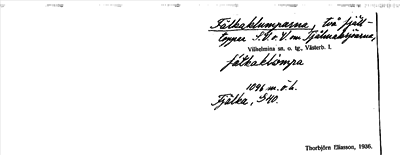 Fälkaklumparna, två fjäll-
toppar S.V. o. V. om Fjälmaksjöarna,
Vilhelmina sn. o. tg., Västerb. l.
fälkaklömpa
1096 m. ö. h.
Fjälka, 540.
Thorbjörn Eliasson, 1936.